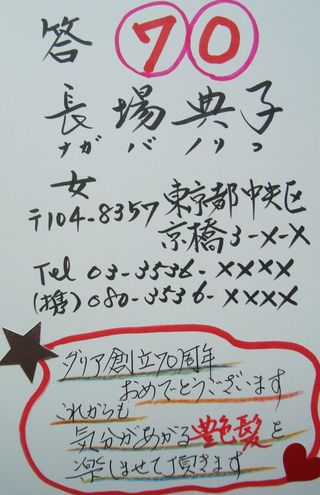 答 70
長場典子
ナガバノリコ
女
〒104-8357 東京都中央区
京橋3-X-X
Tel 03-3536-XXXX
(携) 080-3536-XXXX
ダリア創立70周年
おめでとうございます
これからも
気分があがる艶髪を
楽しませて頂きます